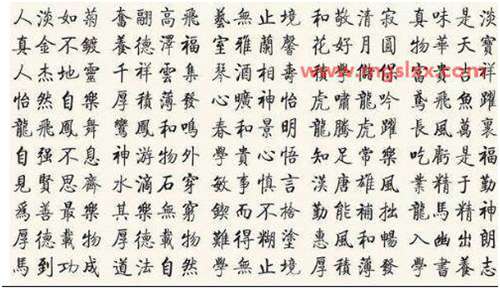 人淡如菊 奮翮高飛 藝無止境 和敬清寂 真味是淡
真金不鍍 養德澤福 室雅蘭馨 花好月圓 物華天寶
人杰地靈 千祥雲集 琴酒相壽 積學 吉祥
怡然自樂 厚積薄發 心曠神怡 虎嘯龍吟 鳶飛魚躍
龍飛鳳舞 鸞鳳和鳴 春和景明 龍騰虎躍 長風萬裏
自强不息 神游物外 學貴心悟 知足常樂 吃虧是福
見賢思齊 水滴石穿 敏事慎言 漢唐雄風 業精于勤
爲善最樂 其樂無窮 鍥而不捨 勤能補拙 龍馬精神
厚德載物 厚德載物 難得糊塗 惠風和暢 入幽出朗
馬到功成 道法自然 學無止境 厚積薄發 學書養志